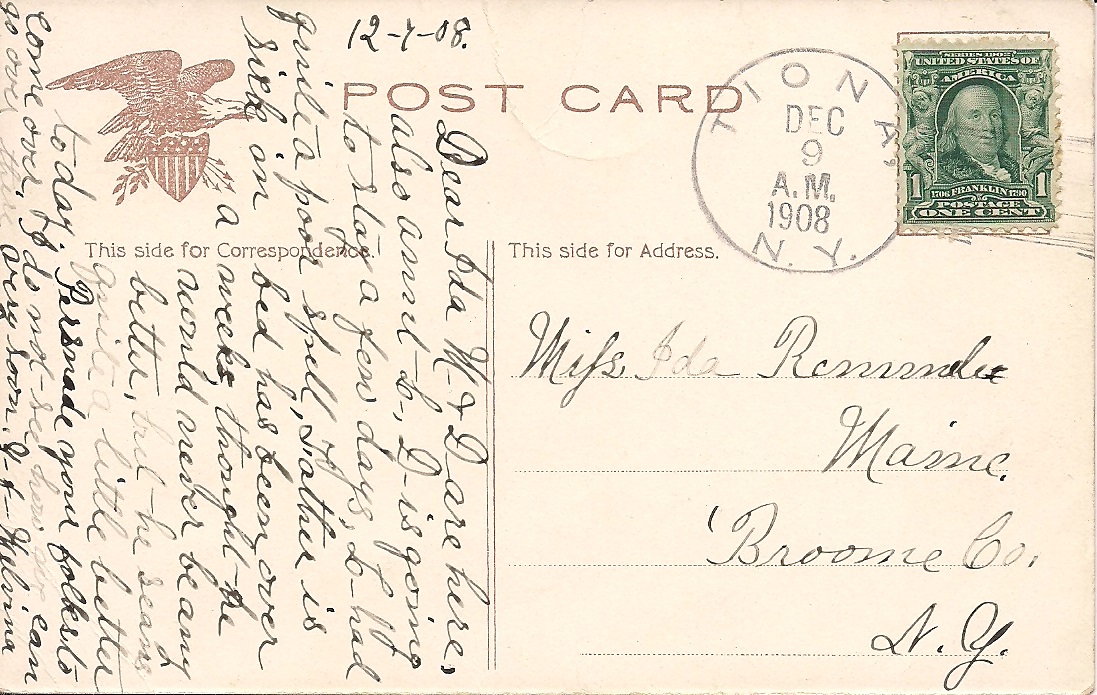 12-7-08.
POST CARD
This side for Correspondence.
This side for Address.
TIONA
DEC
9
A.M.
1908
N. Y.
SERIES 1902
UNITED STATES OF
AMERICA
1706 FRANKLIN 1790
1 1
POSTAGE
ONE CENT
Dear Ida M & D are here,
also aunt L, D is going
to stay a few days, L had
quite a poor spell, Father is
sick in bed has been over
a week, thought he
would never be any
better, but he seems
quite a little better
today, Persuade your folks to
come over, I do not see how you can
go over there very soon.
Miss Ida
Maine.
Broome Co.
N. Y.